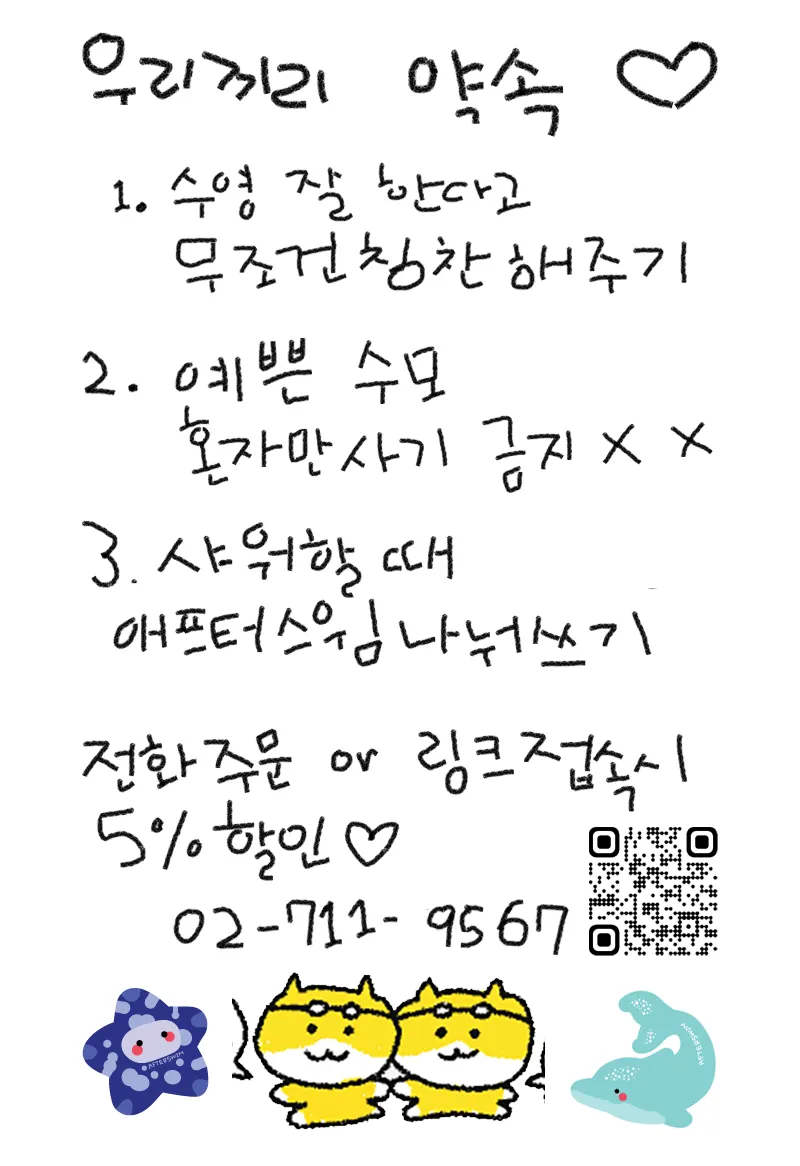 우리끼리 약속 ♡
1. 수영 잘 한다고
무조건 칭찬 해주기
2. 예쁜 수모
혼자만 사기 금지 X X
3. 샤워할 때
애프터스윔 나눠쓰기
전화주문 or 링크접속시
5% 할인 ♡
02-711-9567
AFTERSWIM
AFTERSWIM